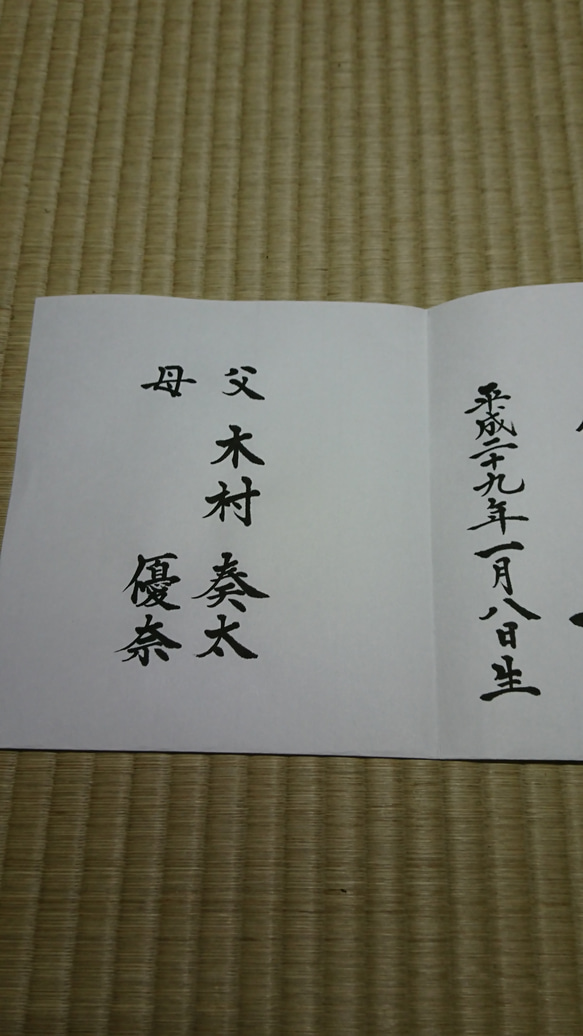 平成二十九年一月八日生
父 木村 奏太
母 優奈